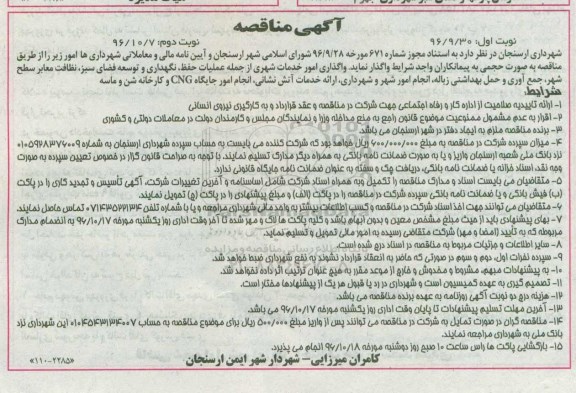 آگهی مناقصه
نوبت اول: ۹۶/۹/۳۰ نوبت دوم: ۹۶/۱۰/۷
شهرداری ارسنجان در نظر دارد به استناد مجوز شماره ۶۷۱ مورخه ۹۶/۹/۲۸ شورای اسلامی شهر ارسنجان و آیین نامه مالی و معاملاتی شهرداری ها امور زیر را از طریق
مناقصه به صورت حجمی به پیمانکاران واجد شرایط واگذار نماید. واگذاری امور خدمات شهری از جمله عملیات حفظ، نگهداری و توسعه فضای سبز، نظافت معابر سطح
شهر، جمع آوری و حمل بهداشتی زباله، انجام امور شهر و شهرداری، ارائه خدمات آتش نشانی، انجام امور جایگاه CNG و کارخانه شن و ماسه
شرایط:
۱- ارائه تاییدیه صلاحیت از اداره کار و رفاه اجتماعی جهت شرکت در مناقصه و عقد قرارداد و به کارگیری نیروی انسانی
۲- اقرار به عدم مشمول ممنوعیت موضوع قانون راجع به منع مداخله وزرا و نمایندگان مجلس و کارمندان دولت در معاملات دولتی و کشوری
۳- برنده مناقصه ملزم به ایجاد دفتر در شهر ارسنجان می باشد.
۴- میزان سپرده شرکت در مناقصه ۶۰۰/۰۰۰/۰۰۰ ریال خواهد بود که شرکت کننده می بایست به حساب سپرده شهرداری ارسنجان به شماره ۰۱۰۵۹۲۸۳۷۶۰۰۹
نزد بانک ملی شعبه ارسنجان واریز و یا به صورت ضمانت نامه بانکی به همراه دیگر مدارک تسلیم نمایند. با توجه به صراحت قانون گزار در خصوص تعیین سپرده به صورت
وجه نقد، اسناد خزانه یا ضمانت نامه بانکی، دریافت چک و سفته به عنوان ضمانت نامه جایگاه قانونی ندارد.
۵- متقاضیان می بایست اسناد و مدارک مناقصه را تکمیل و به همراه اسناد شرکت شامل اساسنامه و آخرین تغییرات شرکت، آگهی تأسیس و تمدید کاری را در پاکت
(ب) فیش بانکی و یا ضمانت نامه بانکی سپرده شرکت در مناقصه را در پاکت (الف) و مبلغ پیشنهادی را در پاکت (ج) تحویل نمایند.
۶- متقاضیان می توانند جهت اخذ اسناد شرکت در مناقصه و کسب اطلاعات بیشتر به واحد مالی شهرداری مراجعه و یا با شماره تلفن ۰۷۱۴۳۵۲۲۱۳۴ تماس حاصل نمایند.
۷- بهای پیشنهادی باید از حیث مبلغ مشخص معین و بدون ابهام باشد و کلیه پاکت ها لاک و مهر شده تا آخر وقت اداری روز یکشنبه مورخه ۹۶/۱۰/۱۷ به انضمام مدارک
مربوطه که به تایید (امضا و مهر) شرکت متقاضی رسیده به امور مالی تحویل و تسلیم نماید.
۸- سایر اطلاعات و جزئیات مربوط به مناقصه در اسناد درج شده است.
۹- سپرده نفرات اول، دوم و سوم در صورتی که حاضر به انعقاد قرارداد نشوند به نفع شهرداری ضبط خواهد شد.
۱۰- به پیشنهادات مبهم، مشروط و مخدوش و خارج از موعد مقرر به هیچ عنوان ترتیب اثر داده نخواهد شد.
۱۱- تصمیم گیری به عهده کمیسیون است و شهرداری در رد یا قبول هر یک از پیشنهادها مختار است.
۱۲- هزینه درج دو نوبت آگهی روزنامه به عهده برنده مناقصه می باشد.
۱۳- آخرین مهلت تسلیم پیشنهادات تا پایان وقت اداری روز یکشنبه مورخه ۹۶/۱۰/۱۷ می باشد.
۱۴- مناقصه گران در صورت تمایل به شرکت در مناقصه می توانند پس از واریز مبلغ ۵۰۰/۰۰۰ ریال برای موضوع مناقصه به حساب ۰۱۰۴۵۴۳۱۳۴۰۰۷ این شهرداری نزد
بانک ملی به شهرداری مراجعه نمایند.
۱۵- بازگشایی پاکت ها راس ساعت ۱۰ صبح روز دوشنبه مورخه ۹۶/۱۰/۱۸ انجام می پذیرد.
کامران میرزایی- شهردار شهر ایمن ارسنجان
«۱۱۰-۲۲۸۵»